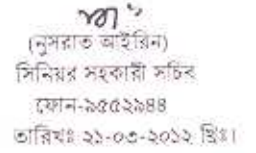 (নুসরাত আইরিন)
সিনিয়র সহকারী সচিব
ফোন-৯৫৫২৯৪৪
তারিখঃ ২১-০৩-২০১২ খ্রিঃ।